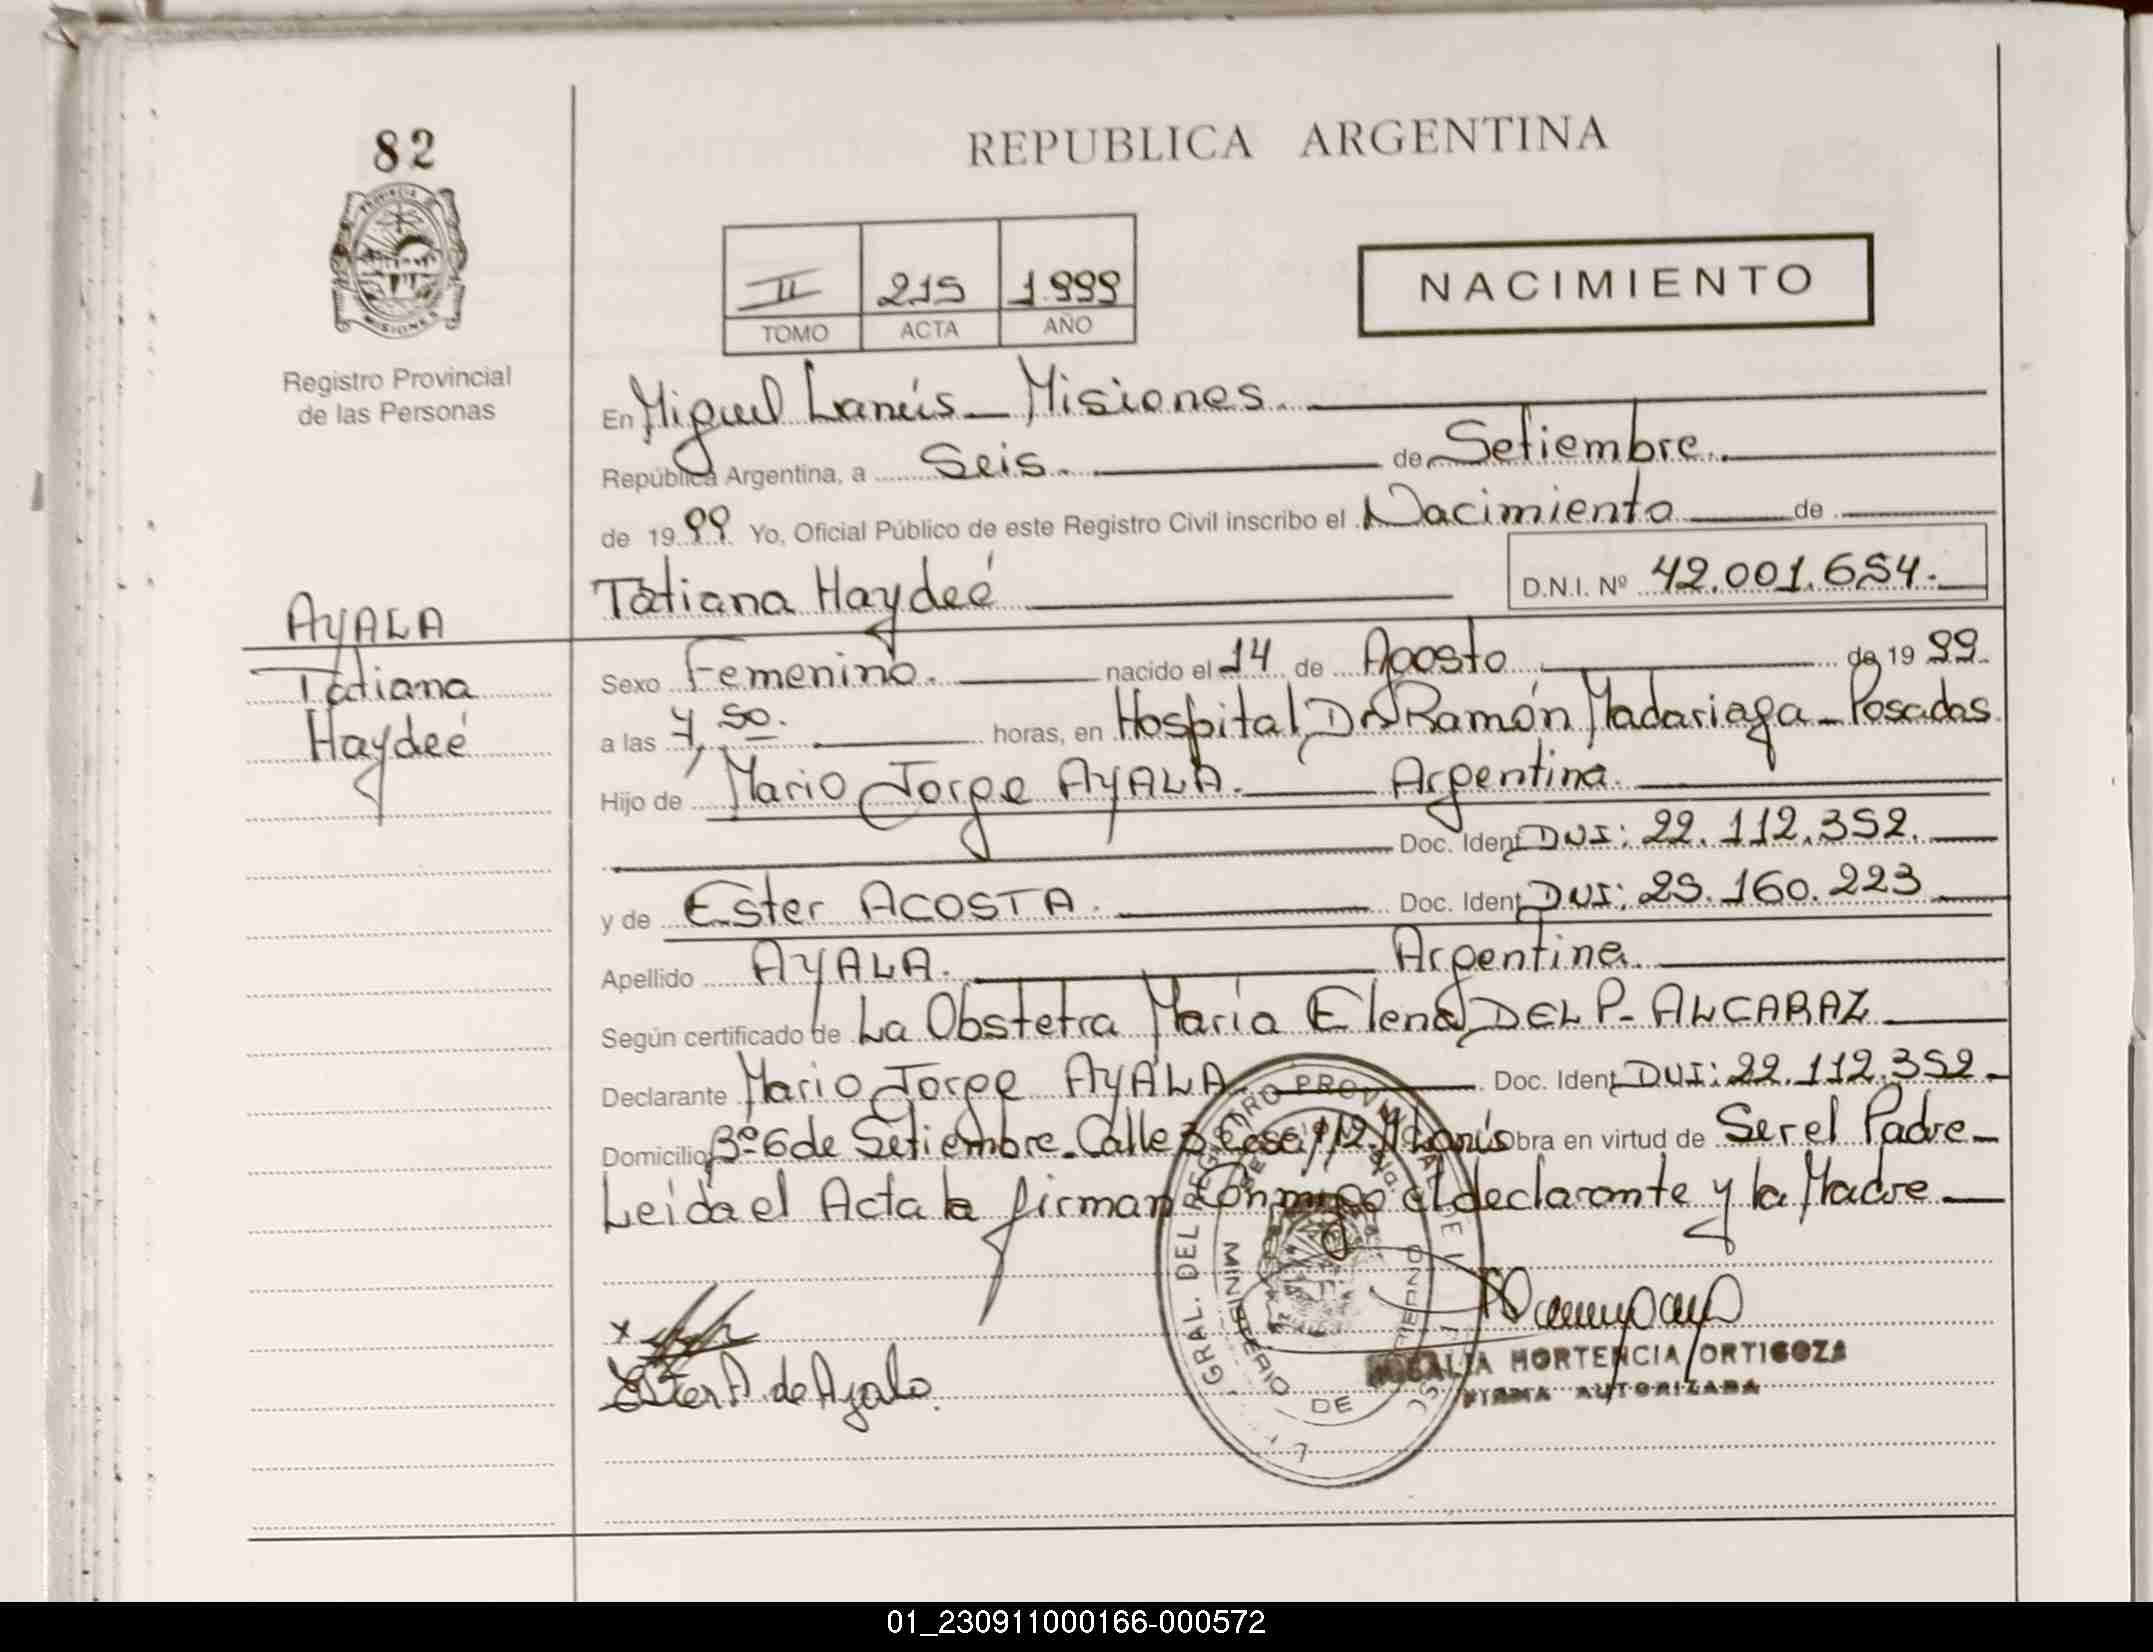 82
REPUBLICA ARGENTINA
II 215 1.999
TOMO ACTA AÑO
NACIMIENTO
PROVINCIA DE MISIONES
Registro Provincial
de las Personas
En Miguel Lanús - Misiones.
República Argentina, a Seis. de Setiembre.
de 1999 Yo, Oficial Público de este Registro Civil inscribo el Nacimiento de
Tatiana Haydeé D.N.I. Nº 42.001.654.
AYALA
Tatiana
Haydeé
Sexo Femenino. nacido el 14 de Agosto de 1999.
a las 7,50. horas, en Hospital Dr Ramón Madariaga - Posadas
Hijo de Mario Jorge AYALA. Argentina.
Doc. Ident DNI: 22.112.352.
y de Ester ACOSTA. Doc. Ident DNI: 25.160.223
Apellido AYALA. Argentina.
Según certificado de La Obstetra María Elena DEL P. ALCARAZ
Declarante Mario Jorge AYALA. Doc. Ident DNI: 22.112.352
Domicilio Bº 6 de Setiembre. Calle 3 casa 112. M Lanús Obra en virtud de Ser el Padre
Leida el Acta la firman conmigo el declarante y la Madre
x
Ester A. de Ayala.
GRAL. DEL REGISTRO PROVINCIAL DE
MINISTERIO DE GOBIERNO
HORTENCIA ORTIGOZA
FIRMA AUTORIZADA
01_230911000166-000572